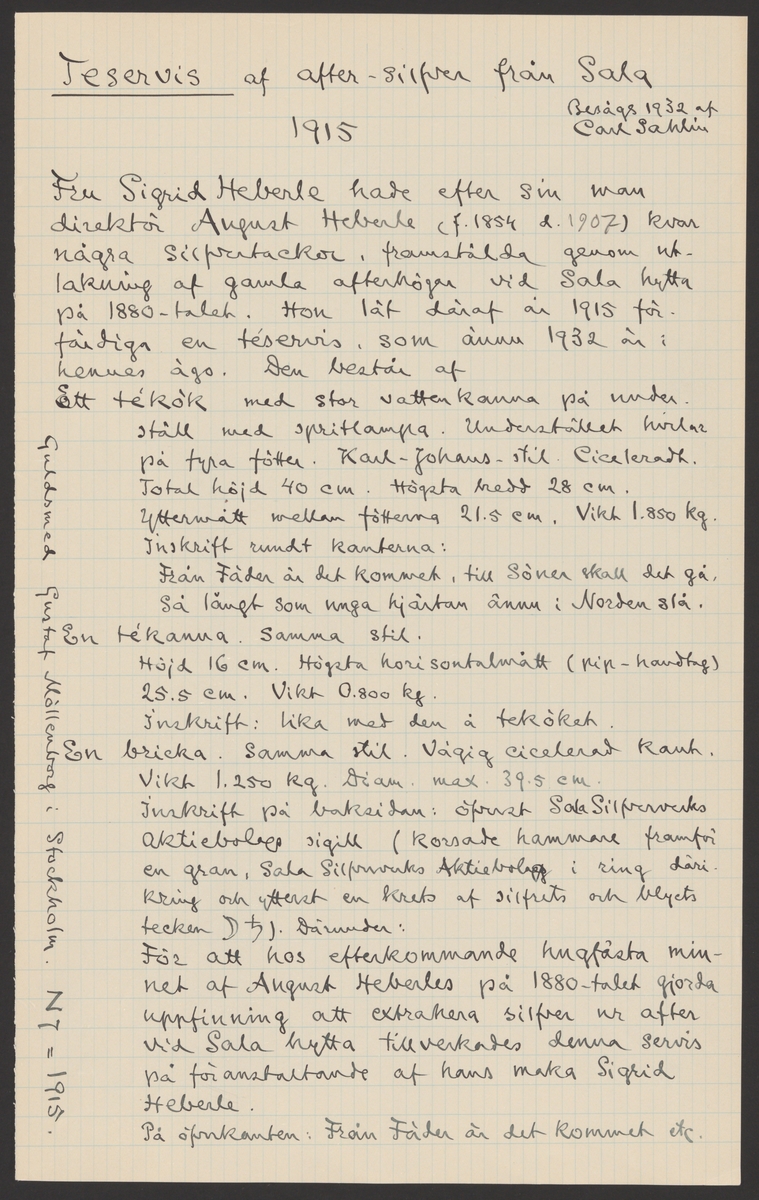 Teservis af after-silfver från Sala
1915
Besågs 1932 af
Carl Sahlin
Fru Sigrid Heberle hade efter sin man
direktör August Heberle (f. 1854 d. 1907) kvar
några silfvertackor, framstälda genom ut-
lakning af gamla afterhögar vid Sala hytta
på 1880-talet. Hon lät däraf år 1915 för-
färdiga en téservis, som ännu 1932 är i
hennes ägo. Den består af
Ett tékök med stor vattenkanna på under-
ställ med spritlampa. Understället hvilar
på fyra fötter. Karl-Johans-stil. Ciceleradt.
Total höjd 40 cm. Högsta bredd 28 cm.
Yttermått mellan fötterna 21.5 cm. Vikt 1.850 kg.
Inskrift rundt kanterna:
Från Fäder är det kommet, till Söner skall det gå,
Så långt som unga hjärtan ännu i Norden slå.
En tékanna. Samma stil.
Höjd 16 cm. Högsta horisontalmått (pip-handtag)
25.5 cm. Vikt 0.800 kg.
Inskrift: lika med den å teköket.
En bricka. Samma stil. Vågig cicelerad kant.
Vikt 1.250 kg. Diam. max. 39.5 cm.
Inskrift på baksidan: öfverst Sala Silfververks
Aktiebolags sigill (korsade hammare framför
en gran, Sala Silfververks Aktiebolag i ring däri-
kring och ytterst en krets af silfrets och blyets
tecken ☽ ♄). Därunder:
För att hos efterkommande hugfästa min-
net af August Heberles på 1880-talet gjorda
uppfinning att extrahera silfver ur after
vid Sala hytta tillverkades denna servis
på föranstaltande af hans maka Sigrid
Heberle.
På öfverkanten: Från Fäder är det kommet etc.
Guldsmed Gustaf Möllenborg i Stockholm. N7 = 1915.